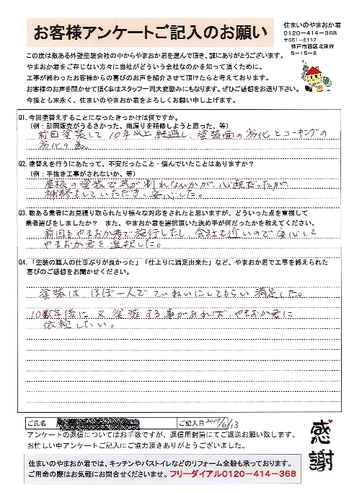 お客様アンケートご記入のお願い
住まいのやまおか君
0120-414-368
〒651-2117
神戸市西区北別府
5-15-8
この度は数ある外壁塗装会社の中からやまおか君を選んで頂き、誠にありがとうございます。
やまおか君をご存じない方々に当社がどういう会社なのかを知って頂くために、
工事が終わったお客様からの喜びのお声を紹介させて頂けたらと考えております。
お客様のお声を聞かせて頂く事はスタッフ一同大変励みにもなります。ぜひご感想をお送り下さい。
今後とも末永く、住まいのやまおか君をよろしくお願い申し上げます。
Q1.今回塗替えすることになったきっかけは何ですか。
(例:訪問販売がうるさかった、雨漏りを修理しようと思った、等)
前回塗装して10年以上経過し、塗装面の劣化とコーキングの
劣化の為。
Q2.塗替えを行うにあたって、不安だったこと・悩んでいたことはありますか?
(例:手抜き工事がされないか、等)
屋根の塗装で瓦が割れないかが心配だったが
補修をしていただき、安心した。
Q3.数ある業者にお見積り取られたり様々な対応をされたと思いますが、どういった点を重視して
業者選びをしましたか? また、やまおか君を選択頂いた決め手が何だったかを教えてください。
前回もやまおか君で施行したし、会社も近いので安心して
やまおか君を選択した。
Q4.「塗装の職人の仕事ぶりが良かった」「仕上りに満足出来た」など、やまおか君で工事を終えられた
喜びのご感想をお聞かせください。
塗装は、ほぼ一人でていねいにしてもらい満足した。
10数年後に又塗装する事があれば、やまおか君に
依頼したい。
ご氏名
ご記入日
アンケートの返信についてはお手数ですが、返信用封筒にてご返送お願い致します。
お忙しい中アンケートに記入にご協力頂きありがとうございました。
感謝
住まいのやまおか君では、キッチンやバストイレなどのリフォーム全般も承っております。
ご用命の際はお気軽にお問合せくださいませ。フリーダイアル0120-414-368